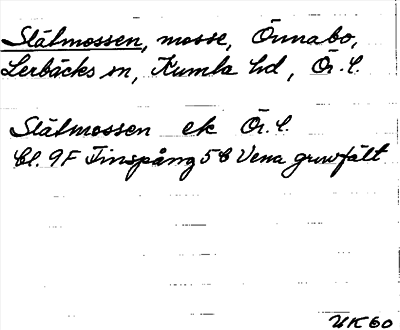 Slätmossen, mosse, Önnabo,
Lerbäcks sn, Kumla hd, Ör. l.
Slätmossen ek Ör. l.
bl. 9F Finspång 5b Vena gruvfält
UK60